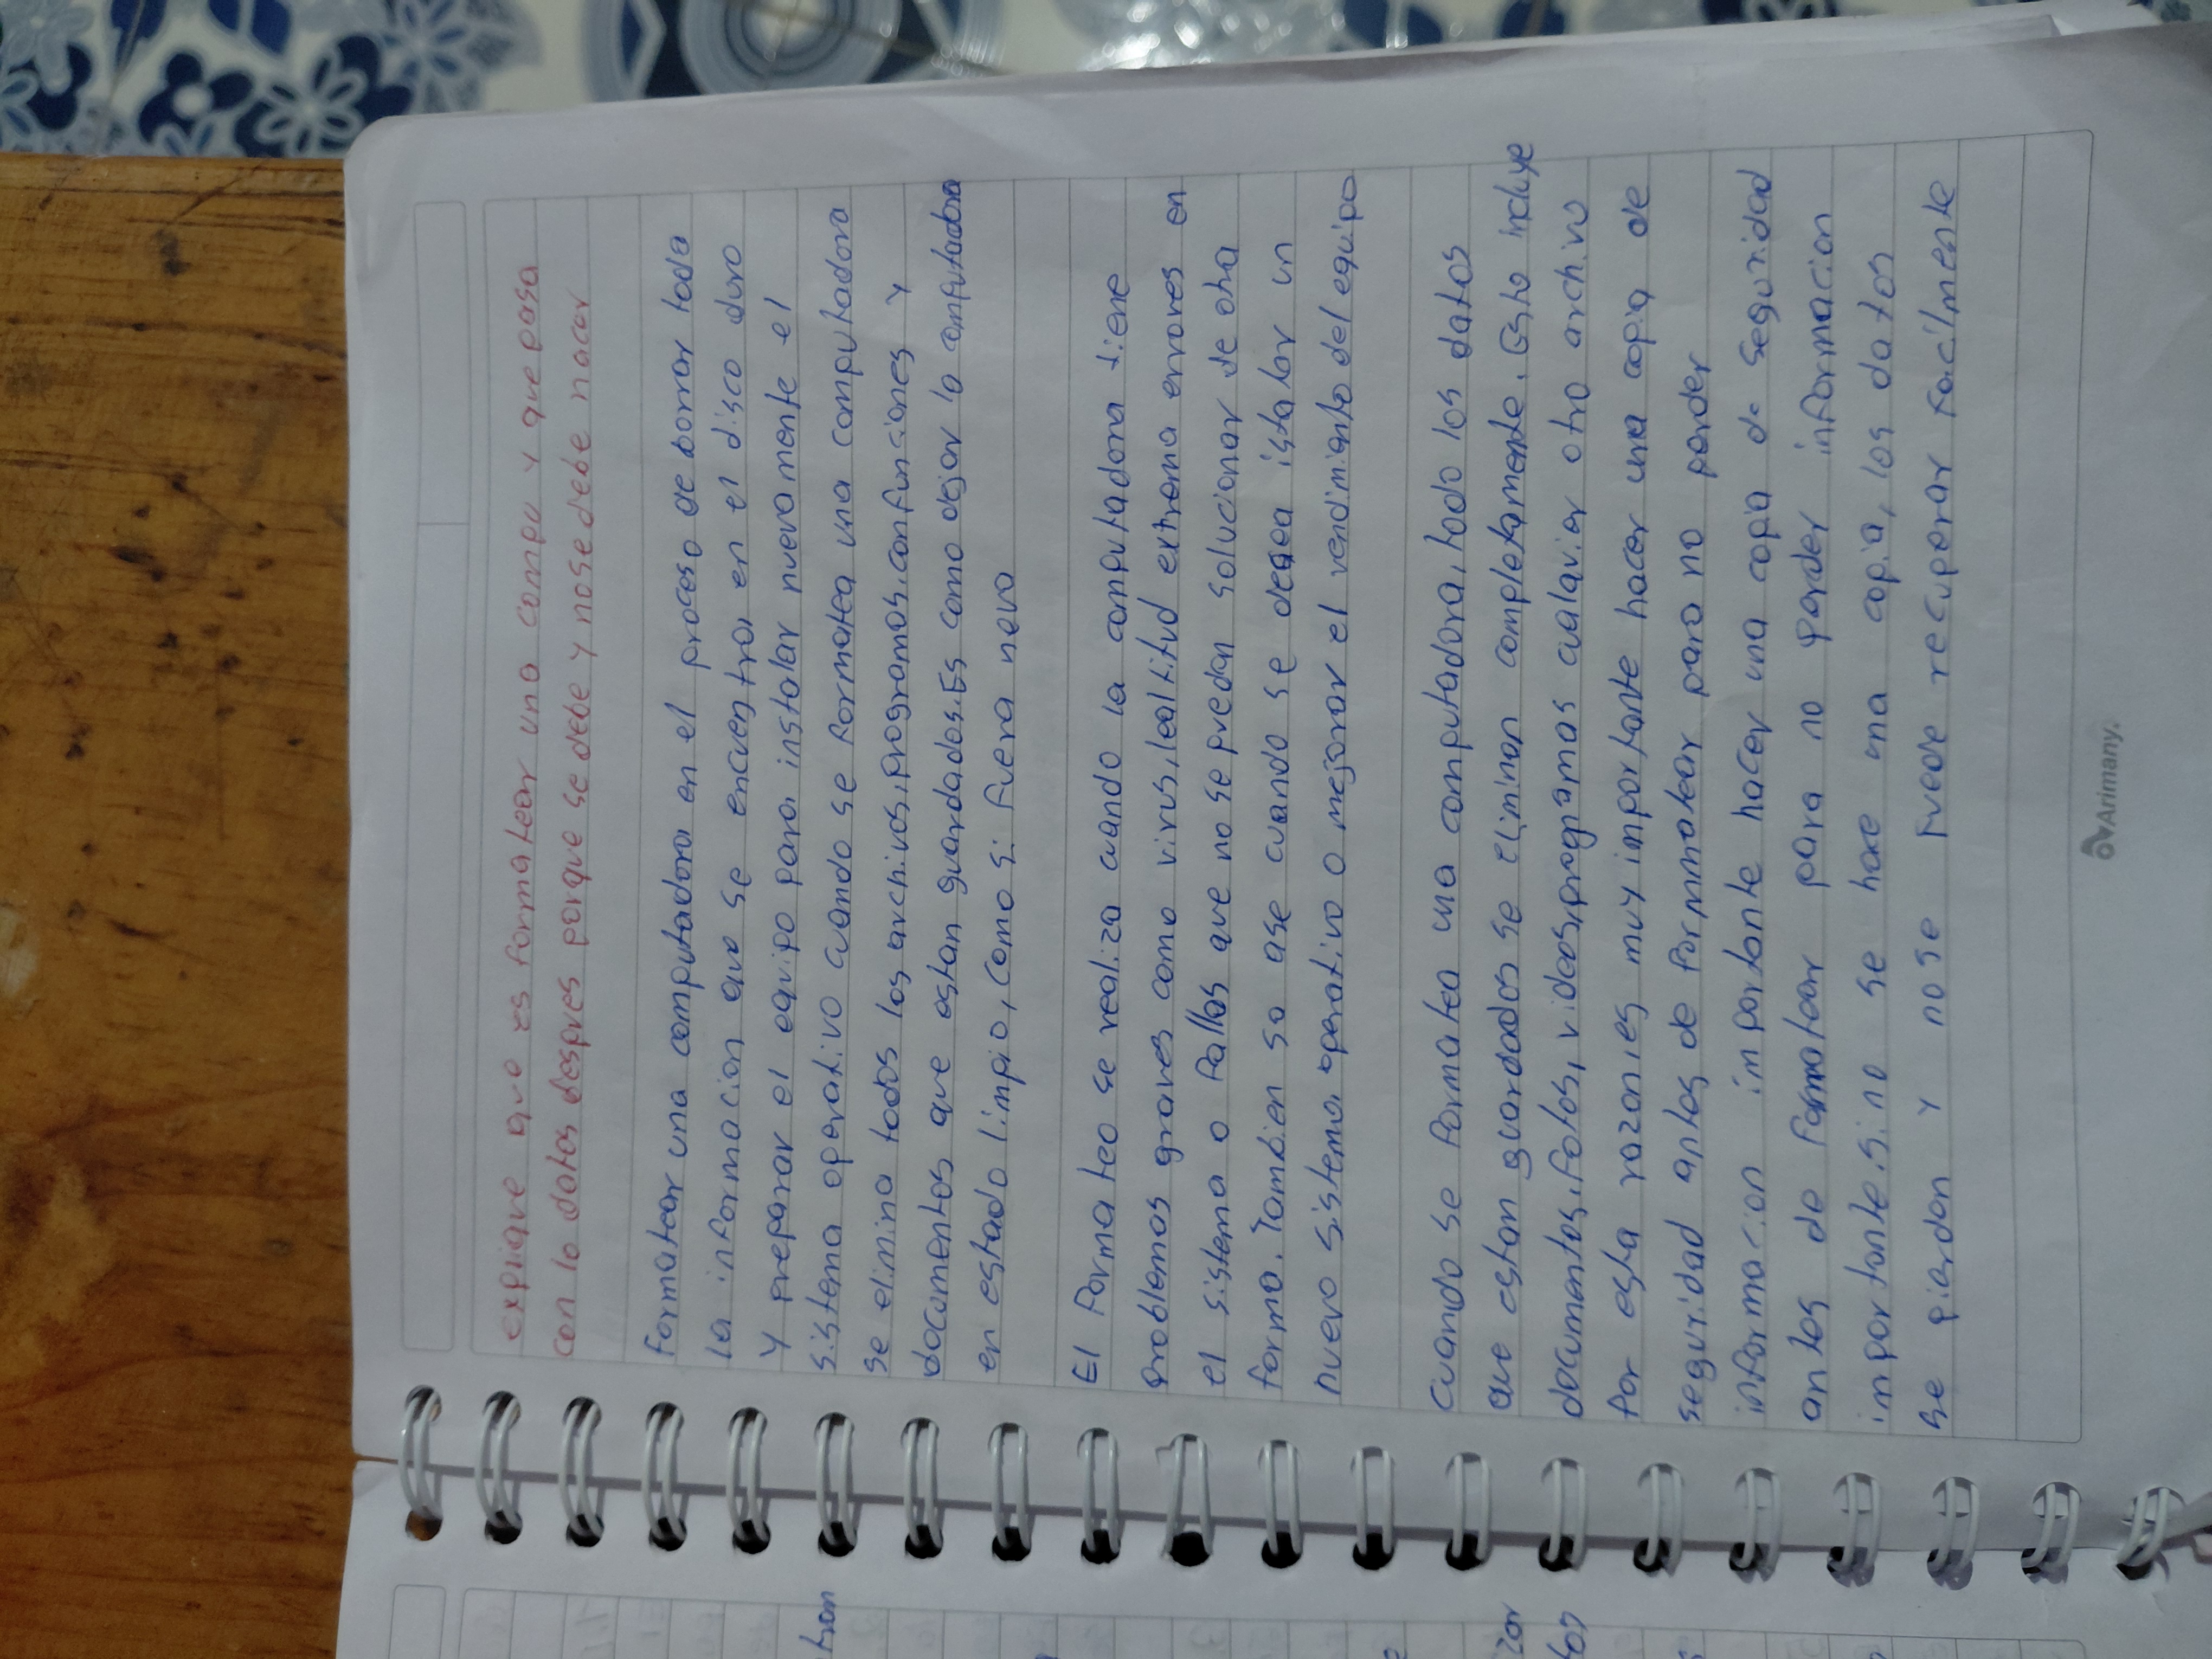 expique que es formatear una compu y que pasa
con lo datos despres porque se debe y nose debe hacer
Formatear una computadora en el proceso de borrar toda
la informacion que se encuentra en el disco duro
y preparar el equipo para instalar nuevamente el
sistema operativo cuando se formatea una computadora
se elimina todos los archivos, programas, confunciones y
documentos que estan guardados. Es como dejar la computadora
en estado limpio, como si fuera neva
El formateo se realiza cuando la computadora tiene
problemas graves como virus, lealtitud extrema errores en
el sistema o fallas que no se puedan solucionar de otra
forma. Tambien se ase cuando se decea istalar un
nuevo sistema operativo o mejorar el rendimiento del equipo
cuando se formatea una computadora, todo los datos
que estan guardados se eliminan completamente. Esto incluye
documentos, fotos, videos, programas cualquier otro archivo
Por esta razon es muy importante hacer una copia de
seguridad antes de formmatear para no perder
informacion importante hacer una copia de seguridad
antes de formatear para no perder informacion
importante. si no se hace una copia, los datos
se pierdan y no se puede recuperar facilmente
Arimany.
tran
zar
los